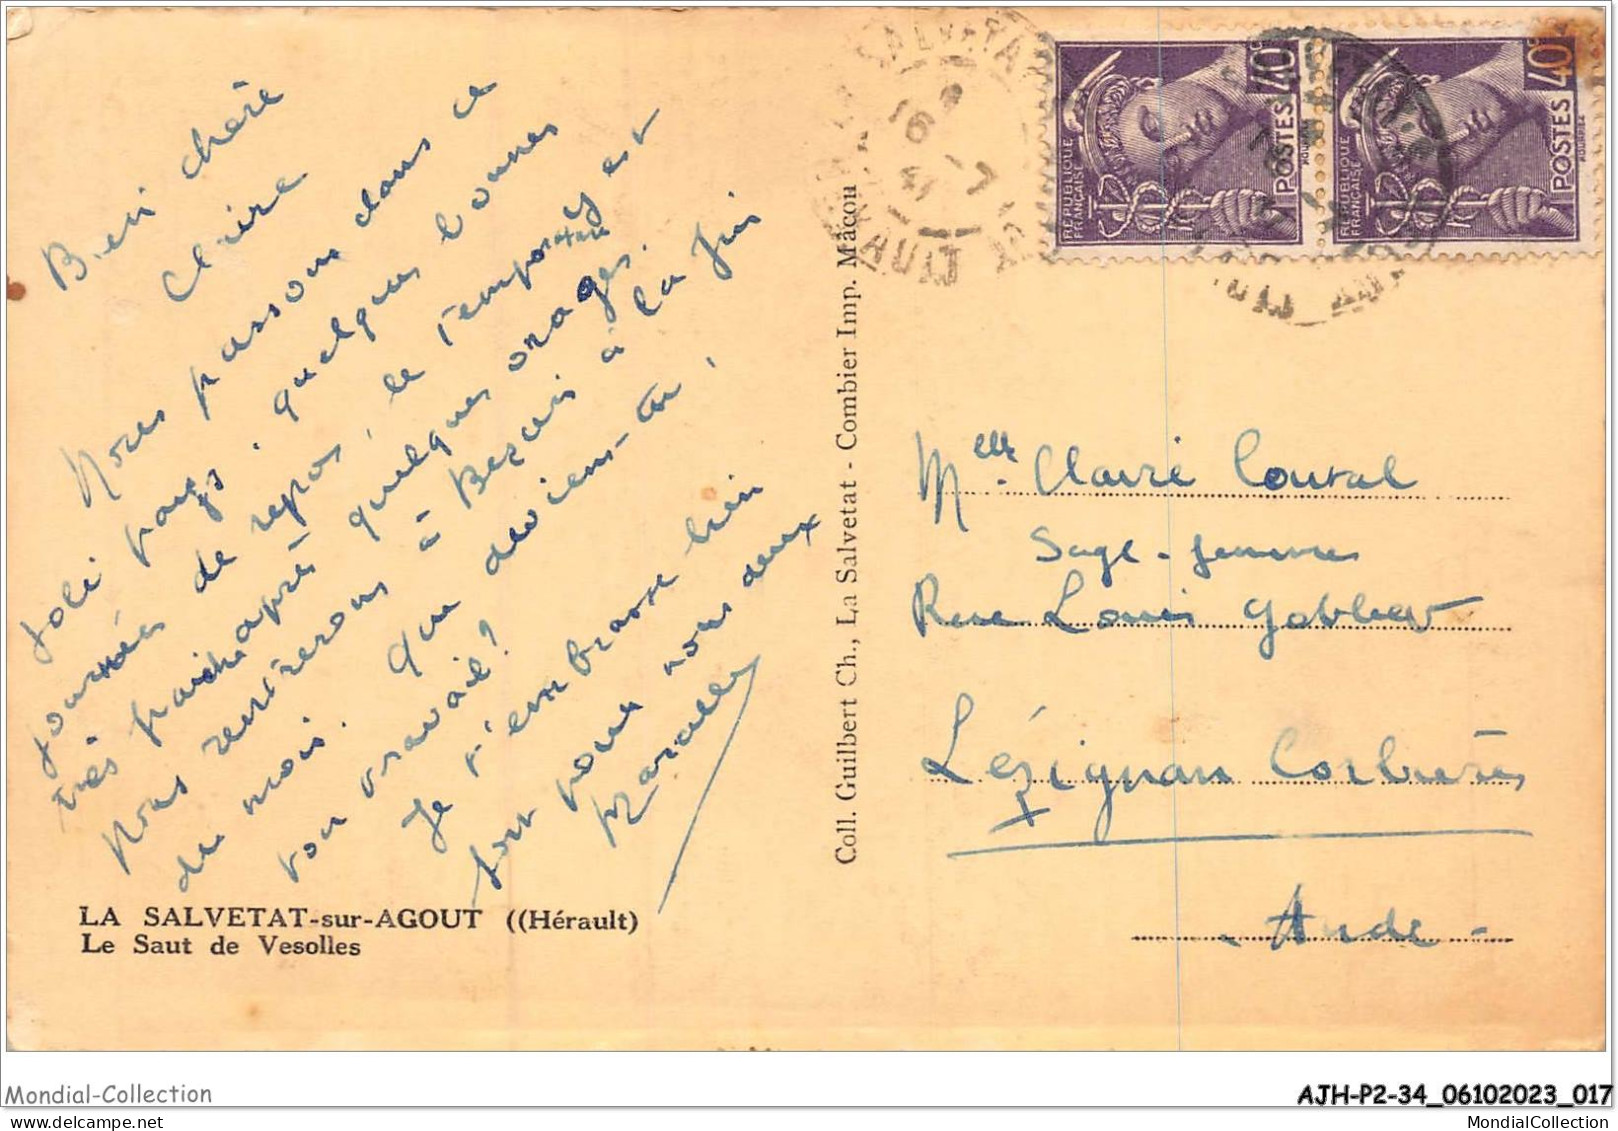 Bien chère
Claire
Nous passons dans ce
joli pays, quelques bonnes
journées de repos, le temps est
très frais après quelques orages.
Nous rentrerons à à la fin
du mois. Que deviens-tu,
ton travail?
Je t'embrasse bien
fort pour nous deux
Marcelle
LA SALVETAT-sur-AGOUT ((Hérault)
Le Saut de Vesolles
Coll. Guilbert Ch., La Salvetat - Combier Imp. Mâcon
REPUBLIQUE FRANÇAISE
POSTES 40c
REPUBLIQUE FRANÇAISE
POSTES 40c
16 -7
Melle Claire Coural
Sage-femme
Rue Louis
Lézignan Corbières
- Aude -
Mondial-Collection
AJH-P2-34_06102023_017
MondialCollection